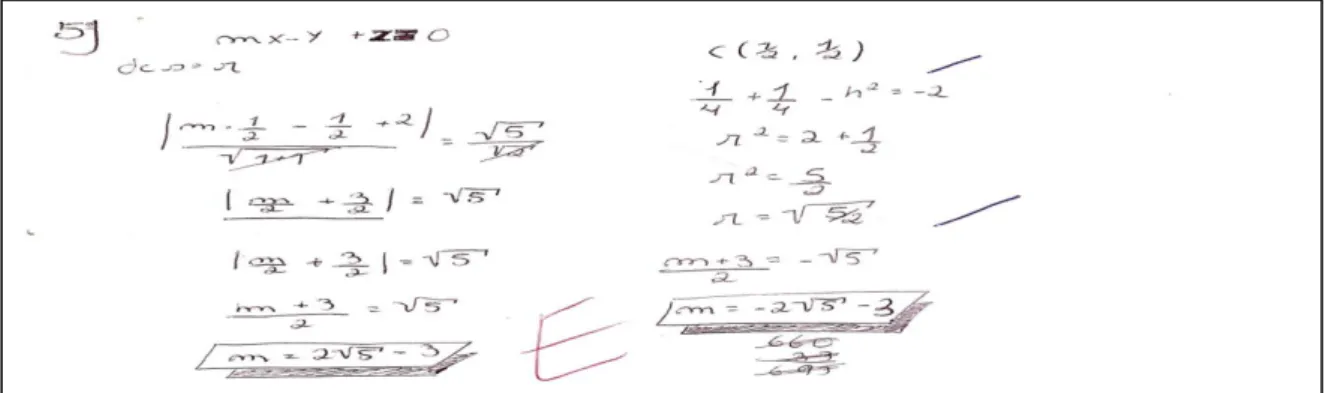 5) mx-y +z=0
dcs=r
|m·1/2 - 1/2 +2| / √1+1 = √5/√2
|m/2 + 3/2| = √5
|m/2 + 3/2| = √5
m+3/2 = √5
m = 2√5 - 3
E
C(1/2, 1/2)
1/4 + 1/4 - r² = -2
r² = 2 + 1/2
r² = 5/2
r = √5/2
m+3/2 = -√5
m = -2√5 - 3
660